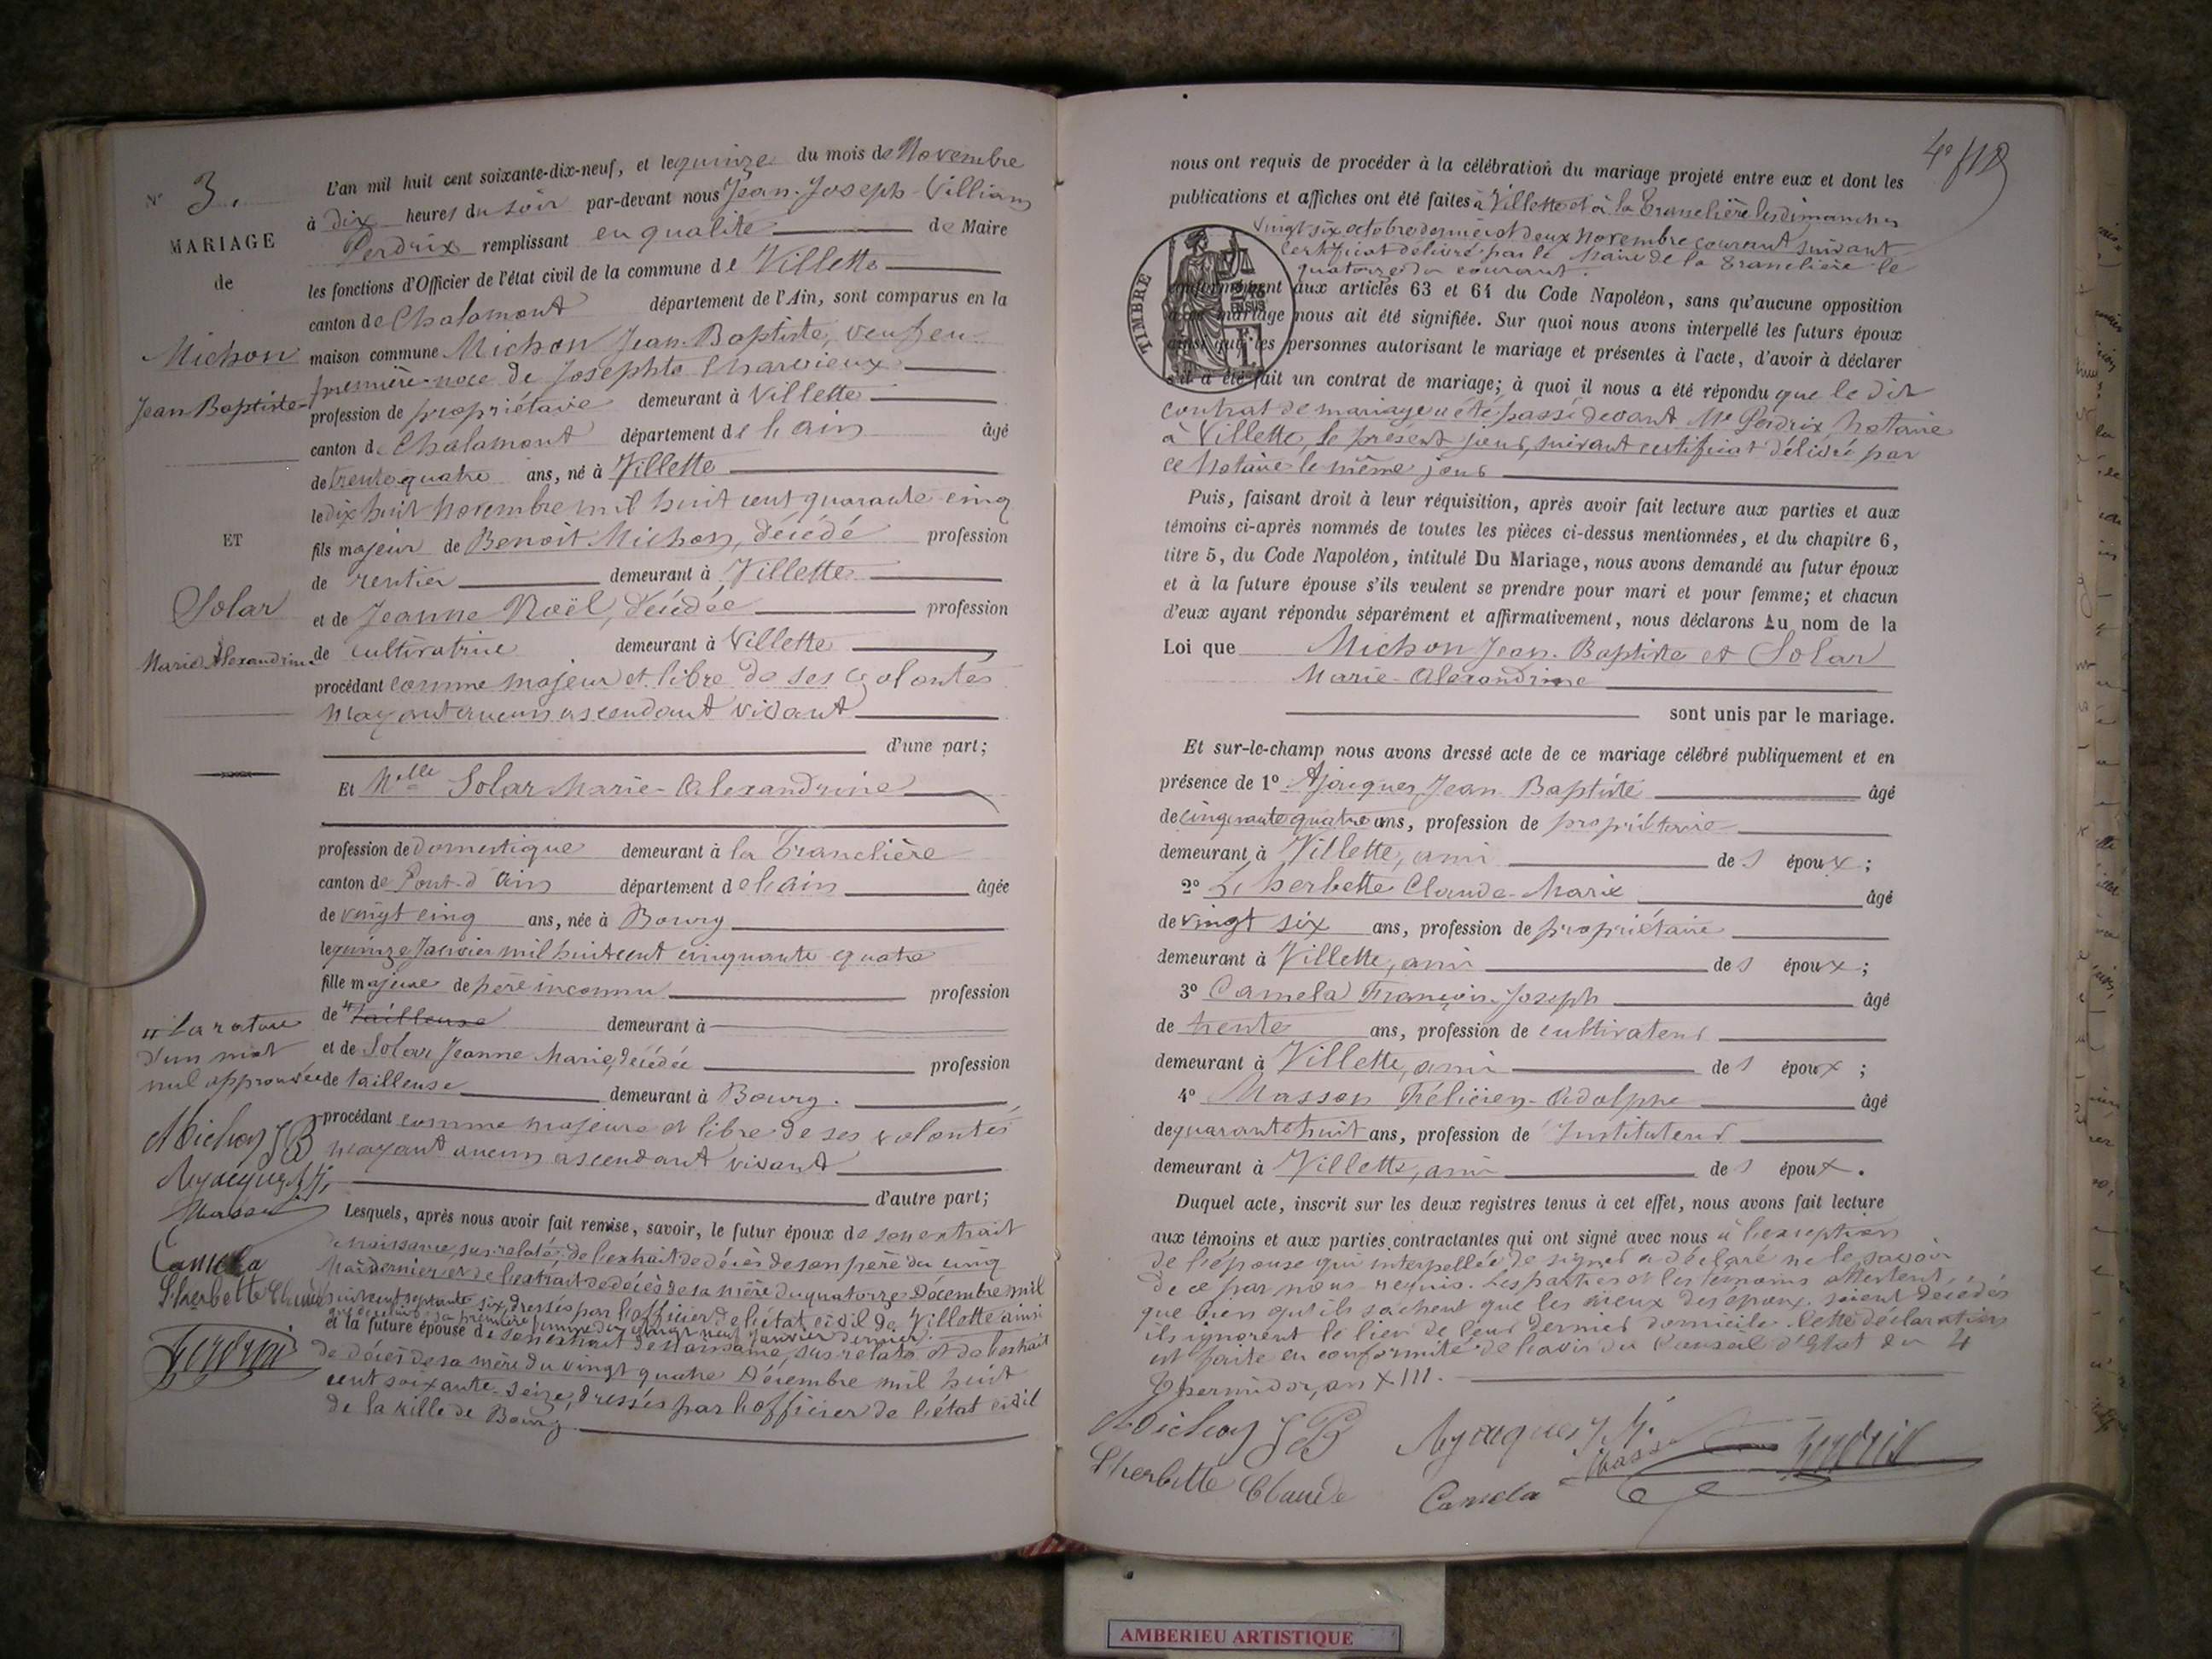 N° 3.
MARIAGE
de
Michon
Jean Baptiste
ET
Solar
Marie Alexandrine
La rature
d'un mot
nul approuvée
Michon JB
Masson
Camela
Lherbette Claude
Perdrix
L'an mil huit cent soixante-dix-neuf, et le quinze du mois de Novembre
à dix heures du soir par-devant nous Jean-Joseph-Villiam
Perdrix remplissant en qualité de Maire
les fonctions d'Officier de l'état civil de la commune de Villette
canton de Chalamont département de l'Ain, sont comparus en la
maison commune Michon Jean-Baptiste, veuf en
première noce de Josephte Charvieux
profession de propriétaire demeurant à Villette
canton de Chalamont département de l'ain âgé
de trente quatre ans, né à Villette
le dix huit novembre mil huit cent quarante cinq
fils majeur de Benoit Michon, décédé profession
de rentier demeurant à Villette
et de Jeanne Noël, décédée profession
de cultivatrice demeurant à Villette
procédant comme majeur et libre de ses volontés
n'ayant aucun ascendant vivant
d'une part;
Et Melle Solar Marie-Alexandrine
profession de domestique demeurant à la Tranclière
canton de Pont-d'Ain département de l'ain âgée
de vingt cinq ans, née à Bourg
le quinze Janvier mil huit cent cinquante quatre
fille majeure de père inconnu profession
de tailleuse demeurant à
et de Solar Jeanne Marie, décédée profession
de tailleuse demeurant à Bourg.
procédant comme majeure et libre de ses volontés
n'ayant aucun ascendant vivant
d'autre part;
Lesquels, après nous avoir fait remise, savoir, le futur époux de son extrait
de naissance, sus relaté, de l'extrait de décès de son père du cinq
Mai dernier et de l'extrait de décès de sa mère du quatorze Décembre mil
huit cent septante six, dressés par l'officier de l'état civil de Villette ainsi
que de celui de sa première femme du vingt neuf Janvier dernier.
et la future épouse de son extrait de naissance, sus relaté et de l'extrait
de décès de sa mère du vingt quatre Décembre mil huit
cent soixante-seize, dressés par l'officier de l'état civil
de la ville de Bourg
nous ont requis de procéder à la célébration du mariage projeté entre eux et dont les
publications et affiches ont été faites à Villette et à la Tranclière les dimanches
vingt six octobre dernier et deux Novembre courant suivant
certificat délivré par le Maire de la Tranclière le
quatorze du courant.
TIMBRE
conformément aux articles 63 et 64 du Code Napoléon, sans qu'aucune opposition
à ce mariage nous ait été signifiée. Sur quoi nous avons interpellé les futurs époux
ainsi que les personnes autorisant le mariage et présentes à l'acte, d'avoir à déclarer
s'il a été fait un contrat de mariage; à quoi il nous a été répondu que le dit
contrat de mariage a été passé devant Me Perdrix Notaire
à Villette, le présent jour, suivant certificat délivré par
ce Notaire le même jour
Puis, faisant droit à leur réquisition, après avoir fait lecture aux parties et aux
témoins ci-après nommés de toutes les pièces ci-dessus mentionnées, et du chapitre 6,
titre 5, du Code Napoléon, intitulé Du Mariage, nous avons demandé au futur époux
et à la future épouse s'ils veulent se prendre pour mari et pour femme; et chacun
d'eux ayant répondu séparément et affirmativement, nous déclarons Au nom de la
Loi que Michon Jean-Baptiste et Solar
Marie-Alexandrine
sont unis par le mariage.
Et sur-le-champ nous avons dressé acte de ce mariage célébré publiquement et en
présence de 1° Ajacques Jean Baptiste âgé
de cinquante quatre ans, profession de propriétaire
demeurant à Villette, ami des époux;
2° Lherbette Claude-Marie âgé
de vingt six ans, profession de propriétaire
demeurant à Villette, ami des époux;
3° Camela François-Joseph âgé
de trente ans, profession de cultivateur
demeurant à Villette, ami des époux;
4° Masson Félicien-Adolphe âgé
de quarante huit ans, profession de Instituteur
demeurant à Villette, ami des époux.
Duquel acte, inscrit sur les deux registres tenus à cet effet, nous avons fait lecture
aux témoins et aux parties contractantes qui ont signé avec nous à l'exception
de l'épouse qui interpellée de signer a déclaré ne le savoir
de ce par nous requis. Les parties et les témoins attestent,
que bien qu'ils sachent que les aïeux des époux soient décédés
ils ignorent le lieu de leur dernier domicile. Cette déclaration
est faite en conformité de l'avis du Conseil d'Etat du 4
Thermidor, an XIII.
Michon JB
Masson
Perdrix
Lherbette Claude
Camela
AMBERIEU ARTISTIQUE